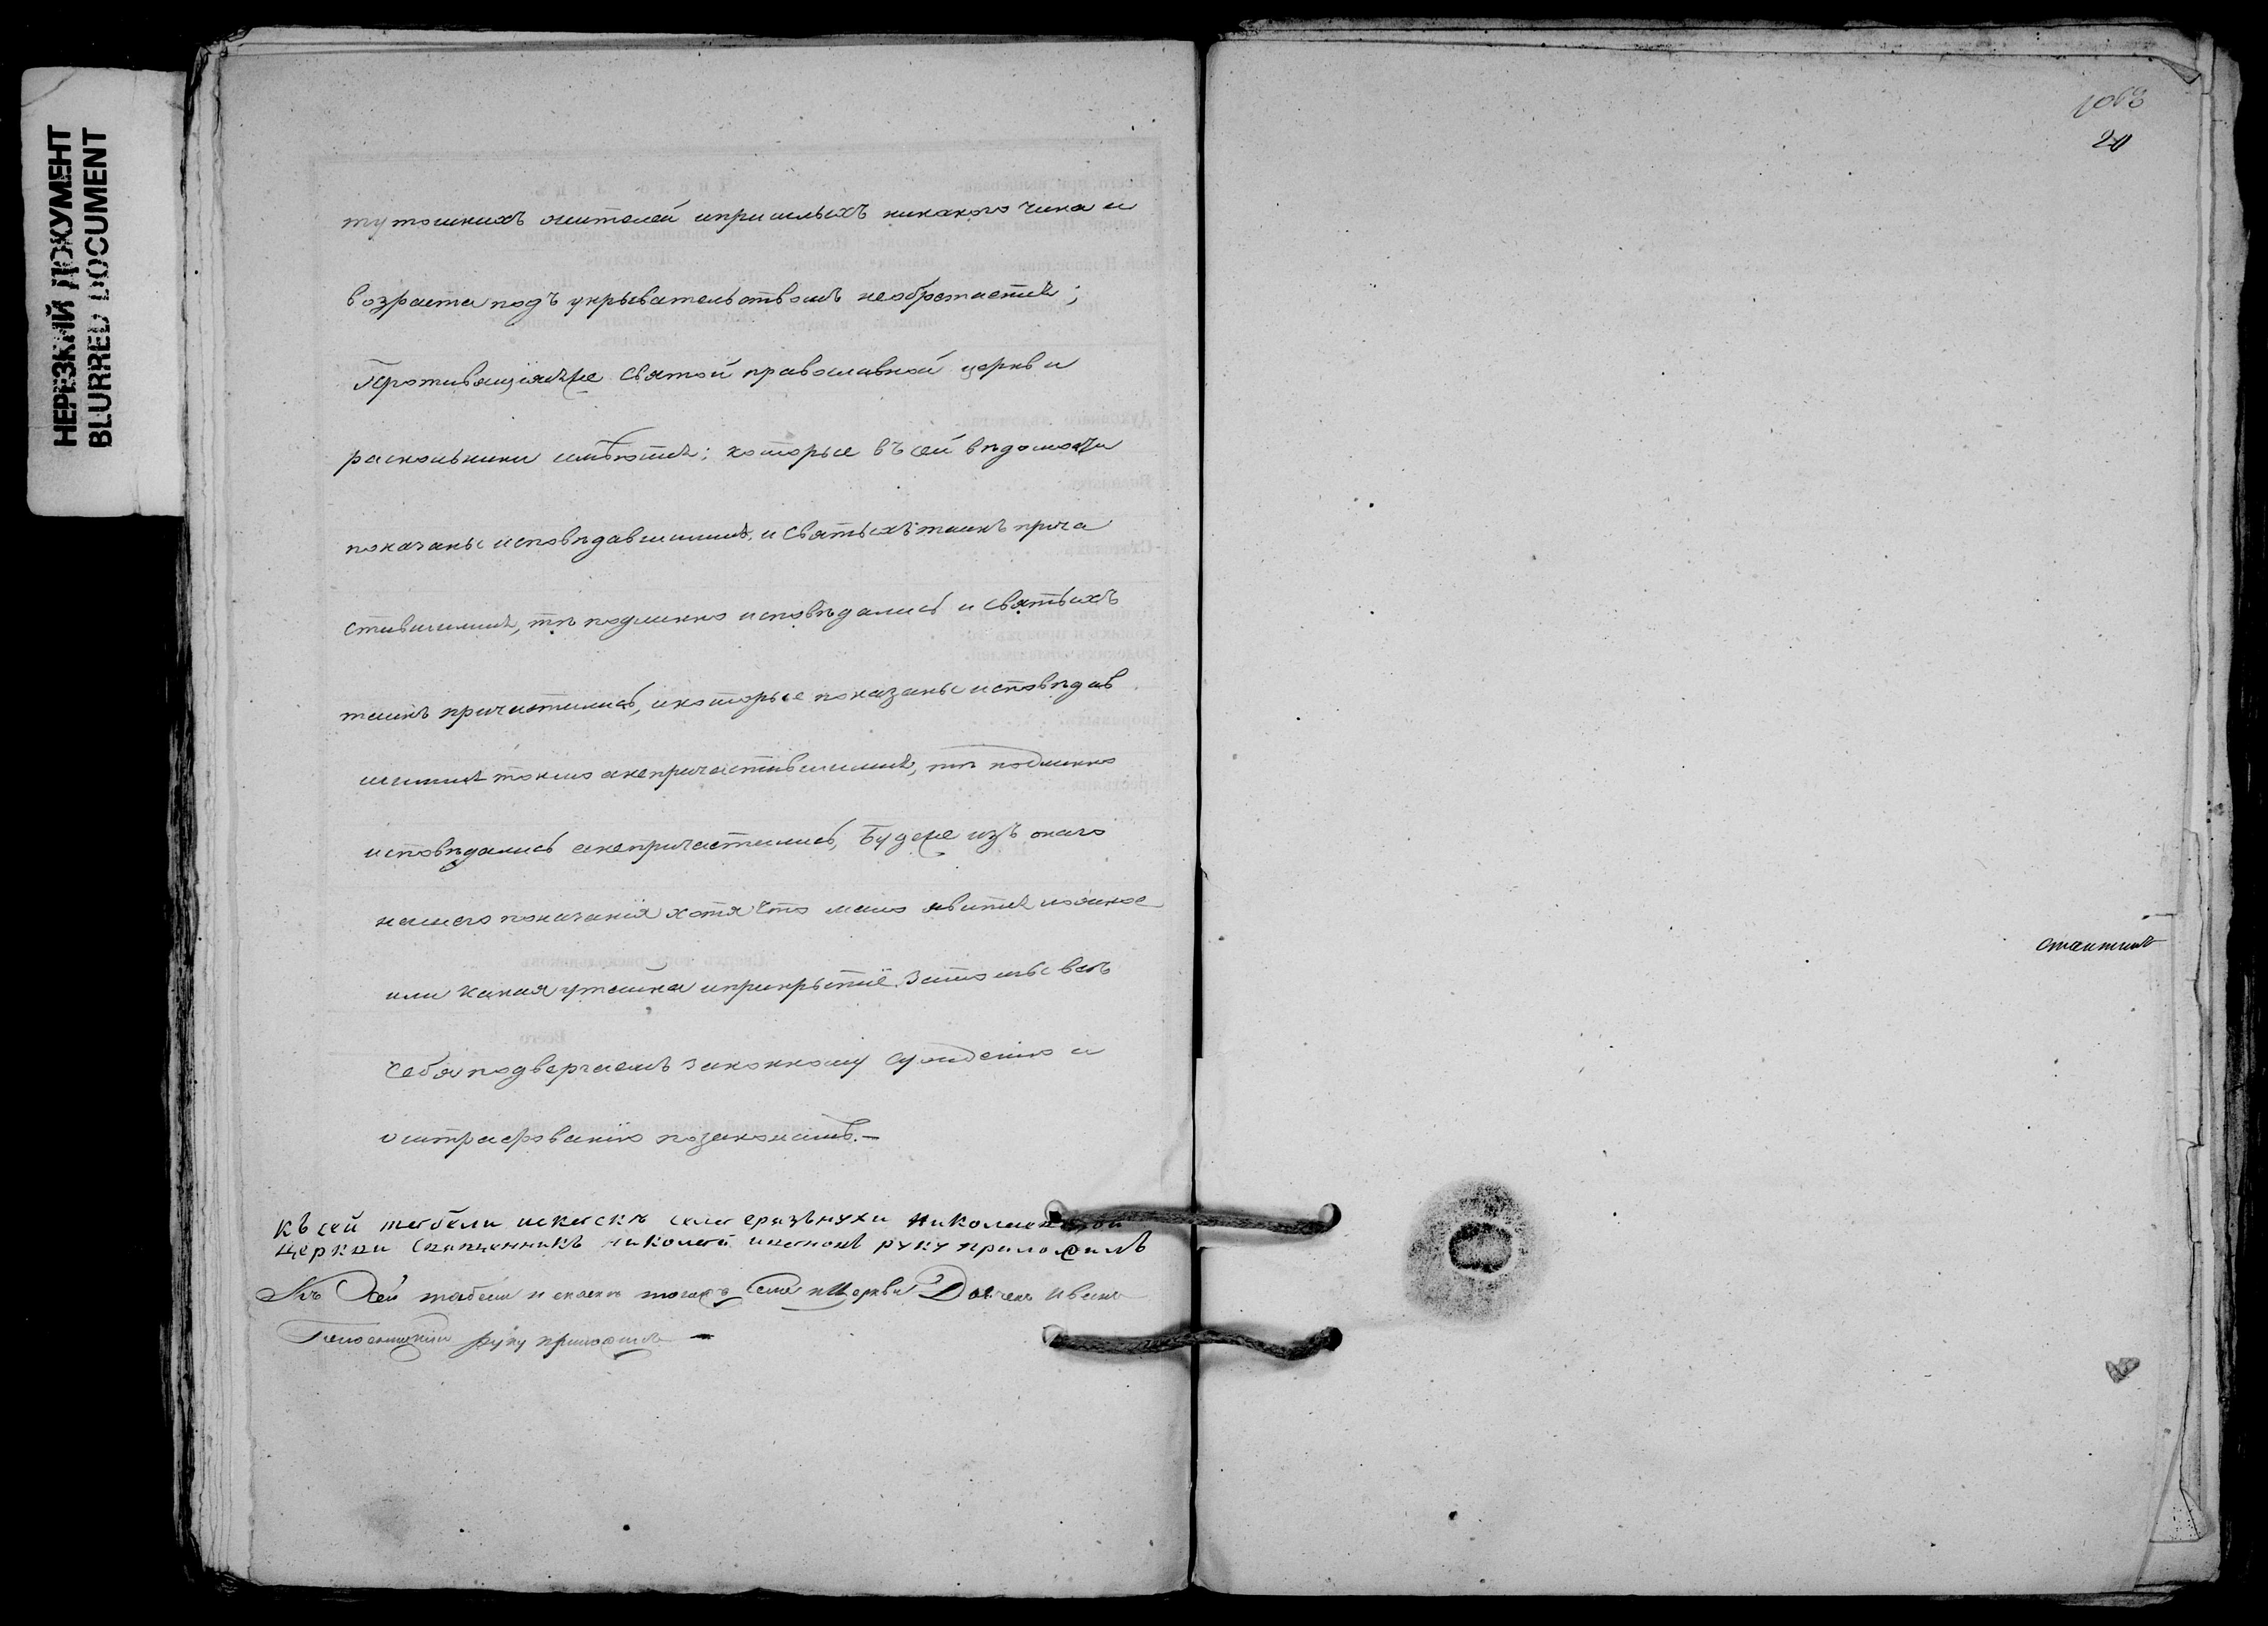 НЕРЕЗКИЙ ДОКУМЕНТ
BLURRED DOCUMENT
тутошнихъ жителей ипришлыхъ никакого чина и
возраста подъ укрывательствомъ необретается;
Противящіяжся Святой православной церкви
раскольники имѣются; которые въ сей вѣдомости
показаны исповѣдавшимися, и Святыхъ таинъ прича
стившимися, тѣ подлинно исповѣдались и Святыхъ
таинъ причастились, икоторые показаны исповѣдав
шимися токмо анепричастившимися, тѣ подлинно
исповѣдались анепричастились, Буде же изъ онаго
нашего показанія хотя что мало явится ложное
или какая утайка иприкрытіе. Зато мы всѣ
Себя подвергаемъ законному сужденію и
оштрафованію позаконамъ.—
Къ сей табели искаскѣ села Грязнухи Николаевской
церкви Священникъ Николай руку приложилъ
Къ Сей табели и скаскѣ тогожъ Села и Церкви Дьяченъ Иванъ
руку приложилъ —
20